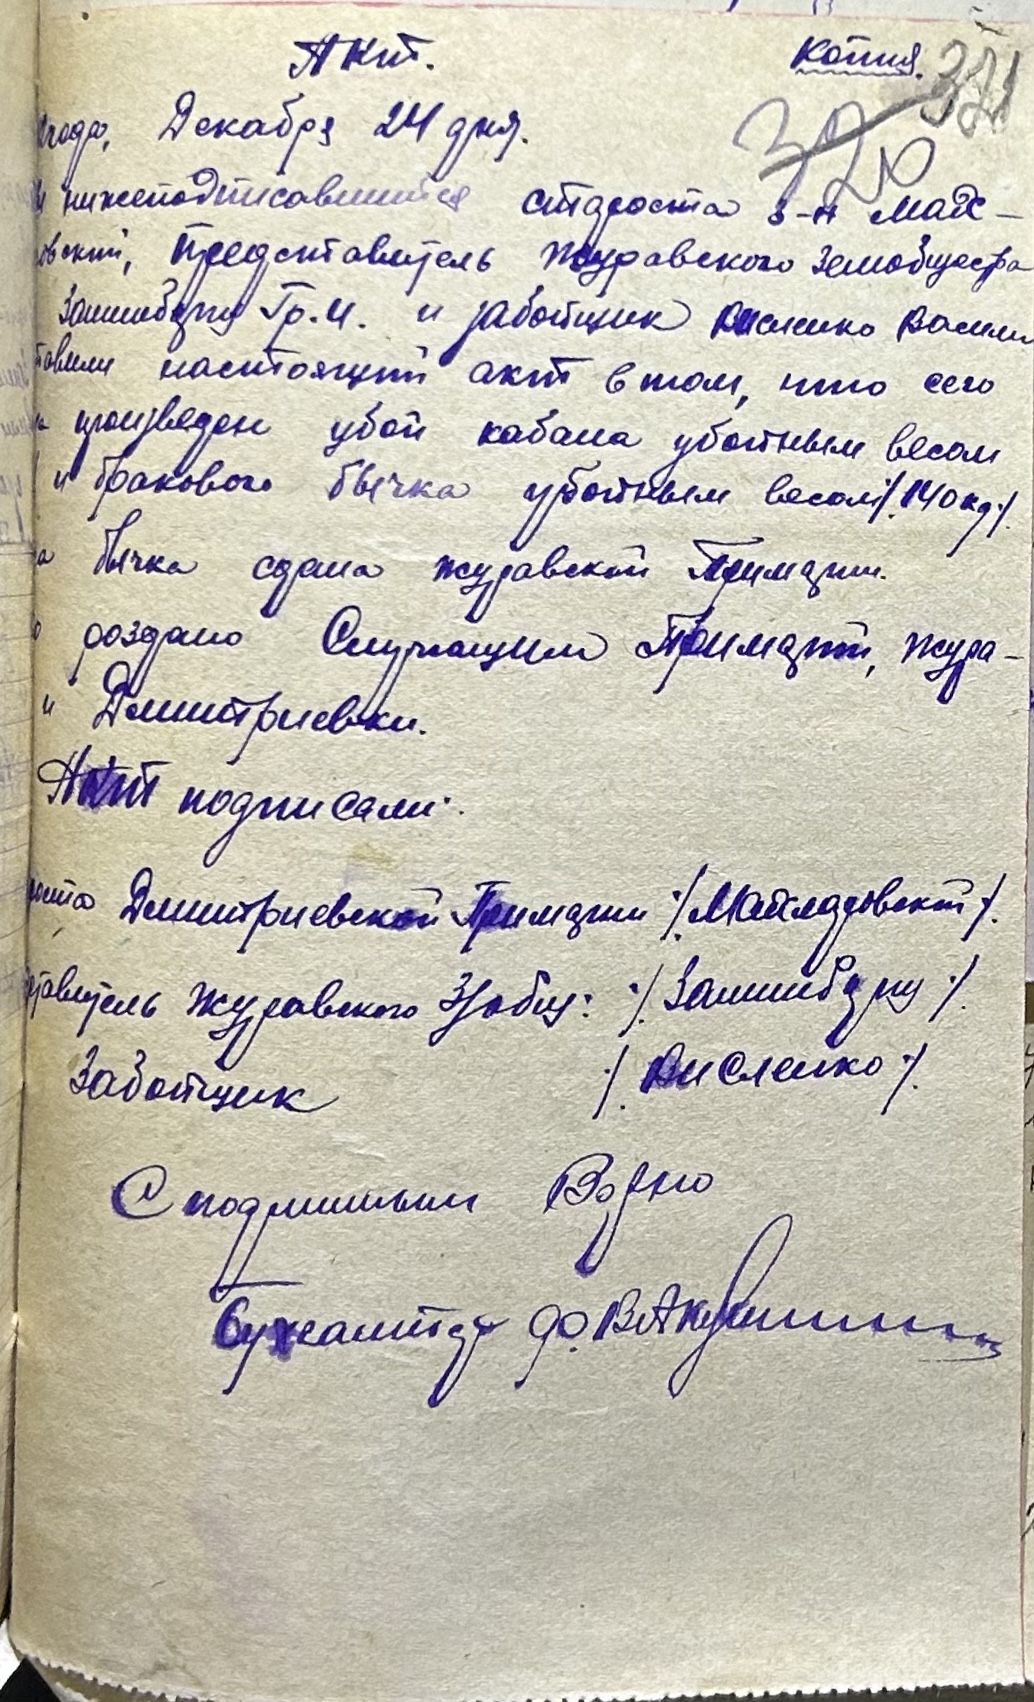 Акт. Копия.
371
320
года, Декабря 24 дня.
нижеподписавшиися староста з-н Май-
овский, Представитель Журавского Земобщества
Замшибуну Гр.И. и забойщик Висленко Васили
тавили настоящий акт в том, что сего
произведен убой кабана убойным весом
и бракового бычка убойным весом /.140 кд./.
а бычка сдана Журавской Примарии.
о роздано Служащим Примарий, Жура-
и Дмитриевки.
Акт подписали:
роста Дмитриевской Примарии /. /.
ставитель Журавского З/общ: /. /.
Забойщик /. Висленко /.
С подлинным Верно
Бухгалтер